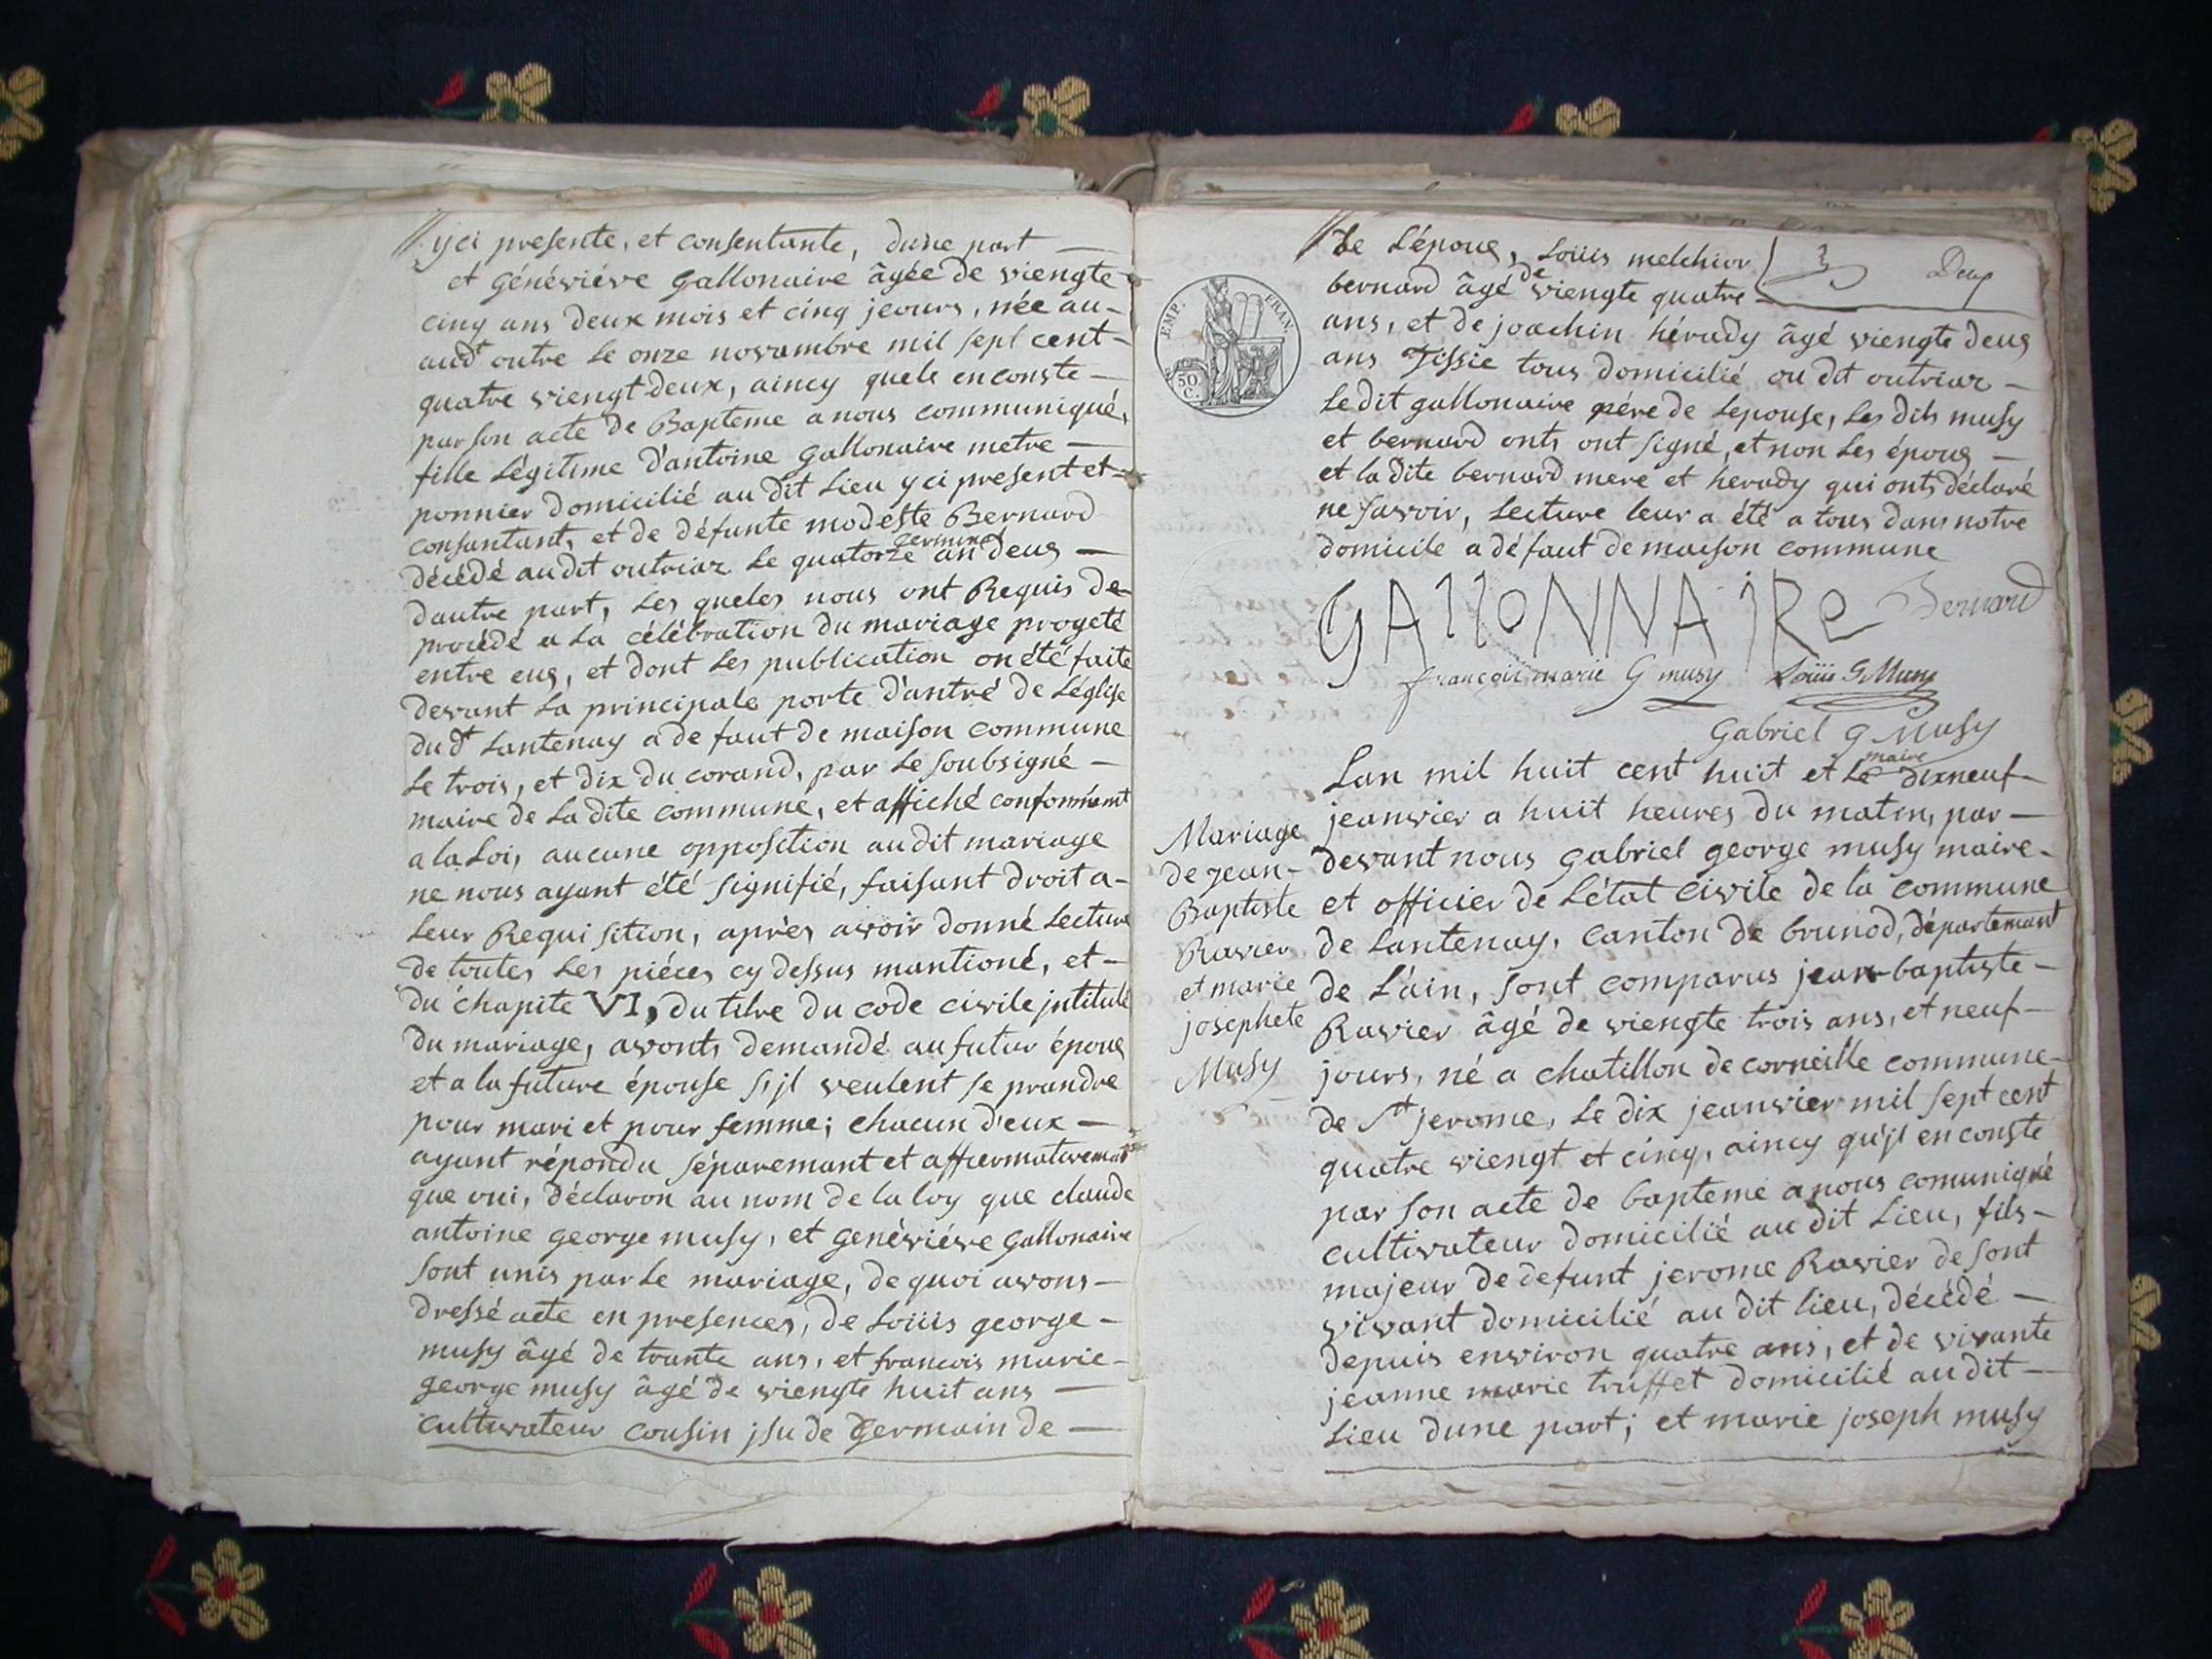 yci presente, et consentante, dune part
et Généviéve gallonaire âgée de viengte
cinq ans deux mois et cinq jeours, née au-
audt outre le onze novambre mil sept cent-
quatre viengt deux, aincy quele enconste
par son acte de Bapteme a nous communiqué,
fille Légitime d'antoine gallonaire metre
ponnier domicilié au dit Lieu yci present et
consantant, et de défunte modeste Bernard
germinal
décédé au dit outriaz le quatorze an deus
dautre part, Les queles nous ont Requis de
procédé a La célébration du mariage progeté
entre eus, et dont Les publication on été faite
devant La principale porte d'antré de Léglise
du dt Lantenay a de faut de maison commune
Le trois, et dix du corand, par Le soubsigné
maire de La dite commune, et affiché conformémt
a la Loi, aucune opposition au dit mariage
ne nous ayant été signifié, faisant droit a-
Leur Requisition, aprés avoir donné Lecture
de toutes Les piéces cy dessus mantioné, et
du chapite VI, du titre du code civile jntitulé
du mariage, avonts demandé au futur épous
et a la future épouse s,jl veulent se prandre
pour mari et pour femme; chacun d'eux
ayant répondu séparemant et affiermativemant
que oui, déclaron au nom de la loy que claude
antoine george musy, et genéviéve gallonaire
sont unis par Le mariage, de quoi avons-
dressé acte en presences, de Loüis george-
musy âgé de trante ans, et francois marie-
george musy âgé de viengte huit ans
cultivateur cousin jsu de germain de
de Lépous, Loüis melchior
3 Deux
bernard âgé de viengte quatre
ans, et de joachin hérudy âgé viengte deus
ans Tissie tous domicilié ou dit outriaz
Le dit gallonaire pére de Lepouse, Les dits musy
et bernard onts ont signé, et non Les épous
et la dite bernard mere et herudy qui onts déclaré
ne savoir, Lecture leur a été a tous dans notre
domicile a défaut de maison commune
EMP. FRAN.
50 C.
GALLONNAIRe Bernard
françois marie G musy Loüis G Musy
Gabriel g Musy
maire
Lan mil huit cent huit et Le dixneuf-
jeanvier a huit heures du matin, par
devant nous gabriel george musy maire
et officier de Létat civile de la commune
de Lantenay, canton de brunod, départemant
de L'ain, sont comparus jean baptiste
Ravier âgé de viengte trois ans, et neuf
jours, né a chatillon de corneille commune
de St jerome, Le dix jeanvier mil sept cent
quatre viengt et cinq, aincy qu'jl en conste
par son acte de bapteme a nous comuniqué
cultivateur domicilié au dit Lieu, fils
majeur de defunt jerome Ravier de sont
vivant domicilié au dit lieu, décédé
depuis environ quatre ans, et de vivante
jeanne marie truffet domicilié au dit
Lieu dune part; et marie joseph musy
Mariage
de jean-
Baptiste
Ravier
et marie
josephete
Musy